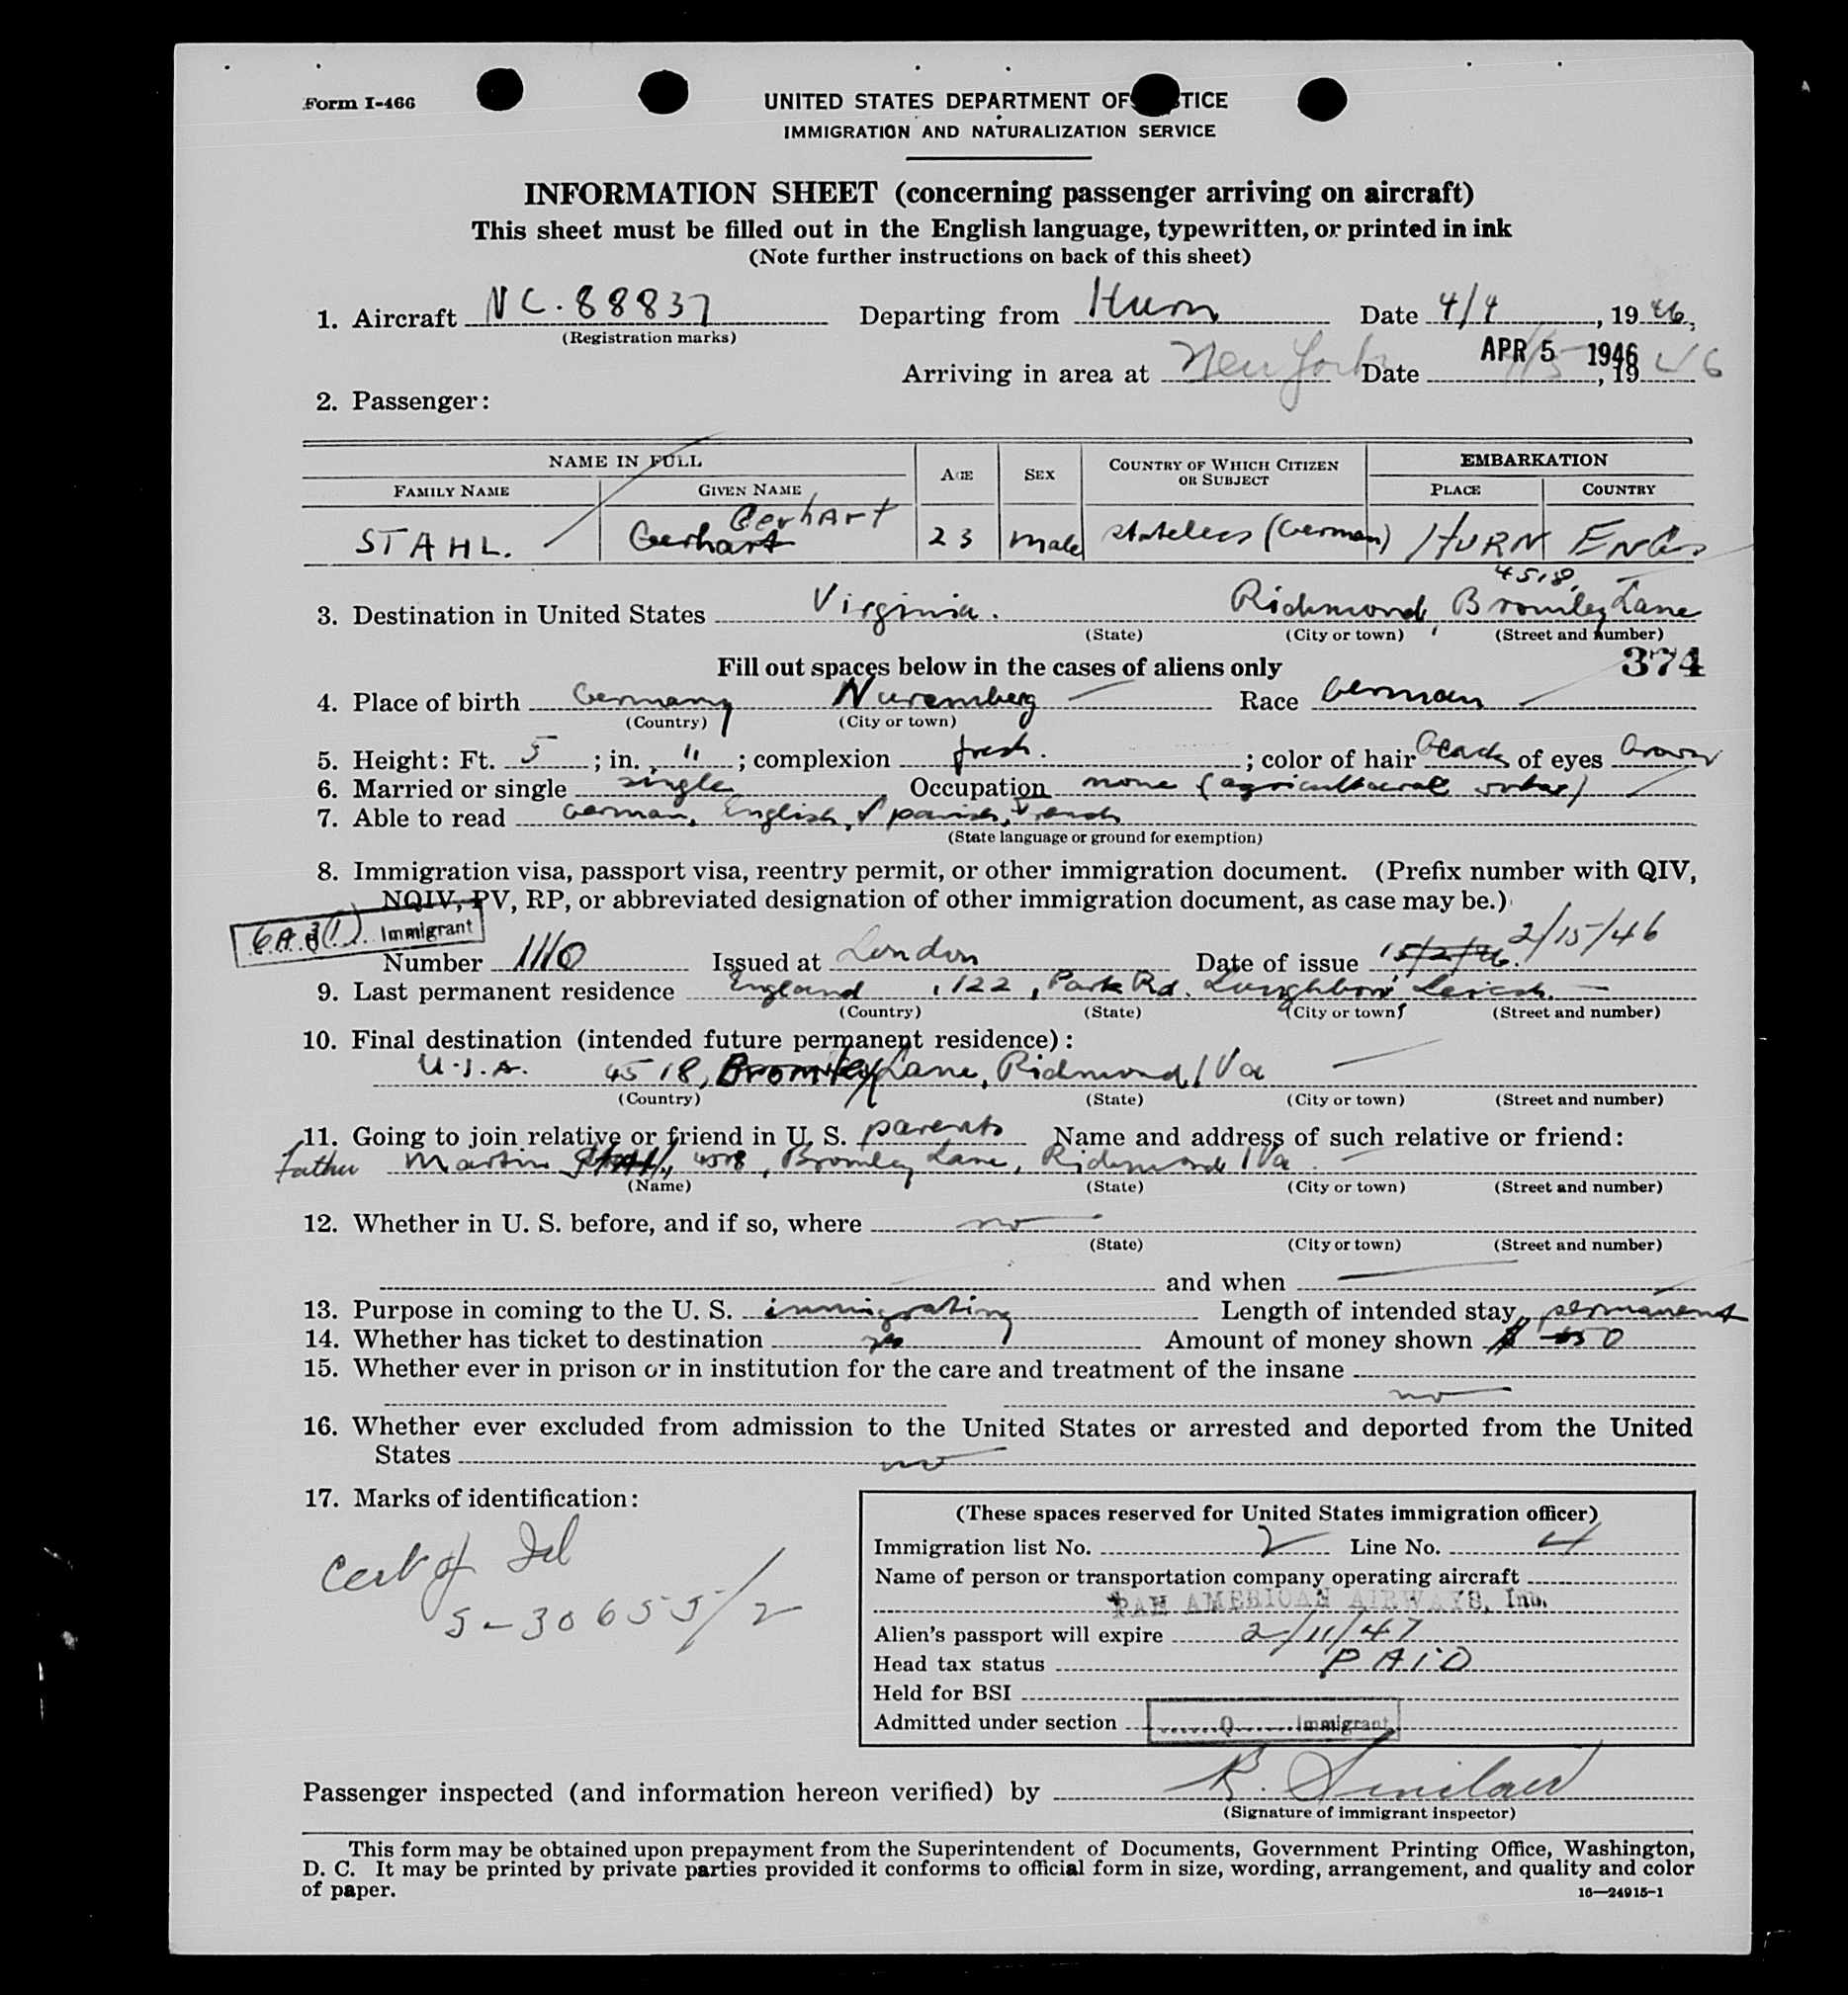 Form I-466
UNITED STATES DEPARTMENT OF TICE
IMMIGRATION AND NATURALIZATION SERVICE
INFORMATION SHEET (concerning passenger arriving on aircraft)
This sheet must be filled out in the English language, typewritten, or printed in ink
(Note further instructions on back of this sheet)
1. Aircraft NC.88837 Departing from Hurn Date 4/4, 1946,
(Registration marks)
APR 5 1946
Arriving in area at New York Date 4/5, 1946
2. Passenger:
NAME IN FULL AGE SEX COUNTRY OF WHICH CITIZEN OR SUBJECT EMBARKATION
FAMILY NAME GIVEN NAME PLACE COUNTRY
Gerhart
STAHL. Gerhart 23 male stateless (German) HURN
4518,
3. Destination in United States Virginia. Richmond, Bromley Lane
(State) (City or town) (Street and number)
Fill out spaces below in the cases of aliens only 374
4. Place of birth Germany Nuremberg Race German
(Country) (City or town)
5. Height: Ft. 5; in. 11; complexion fresh.; color of hair black of eyes brown
6. Married or single single Occupation none (agricultural worker)
7. Able to read German, English, Spanish, French
(State language or ground for exemption)
8. Immigration visa, passport visa, reentry permit, or other immigration document. (Prefix number with QIV,
NQIV, PV, RP, or abbreviated designation of other immigration document, as case may be.)
6A3(1) Immigrant
Number 1110 Issued at London Date of issue 15/2/46. 2/15/46
9. Last permanent residence England, 122, Park Rd. Loughboro', Leics.
(Country) (State) (City or town) (Street and number)
10. Final destination (intended future permanent residence):
U.S.A. 4518, Bromley Lane, Richmond, Va
(Country) (State) (City or town) (Street and number)
11. Going to join relative or friend in U. S. parents Name and address of such relative or friend:
Father Martin Stahl, 4518, Bromley Lane, Richmond, Va.
(Name) (State) (City or town) (Street and number)
12. Whether in U. S. before, and if so, where no
(State) (City or town) (Street and number)
and when
13. Purpose in coming to the U. S. immigrating Length of intended stay permanent
14. Whether has ticket to destination yes Amount of money shown $ 50
15. Whether ever in prison or in institution for the care and treatment of the insane
no
16. Whether ever excluded from admission to the United States or arrested and deported from the United
States no
17. Marks of identification:
Cert of Id
S-30655/2
(These spaces reserved for United States immigration officer)
Immigration list No. 2 Line No. 4
Name of person or transportation company operating aircraft
PAN AMERICAN AIRWAYS, Inc.
Alien's passport will expire 2/11/47
Head tax status PAID
Held for BSI
Admitted under section Q Immigrant
Passenger inspected (and information hereon verified) by R. Sinclair
(Signature of immigrant inspector)
This form may be obtained upon prepayment from the Superintendent of Documents, Government Printing Office, Washington,
D. C. It may be printed by private parties provided it conforms to official form in size, wording, arrangement, and quality and color
of paper.
16—24915-1